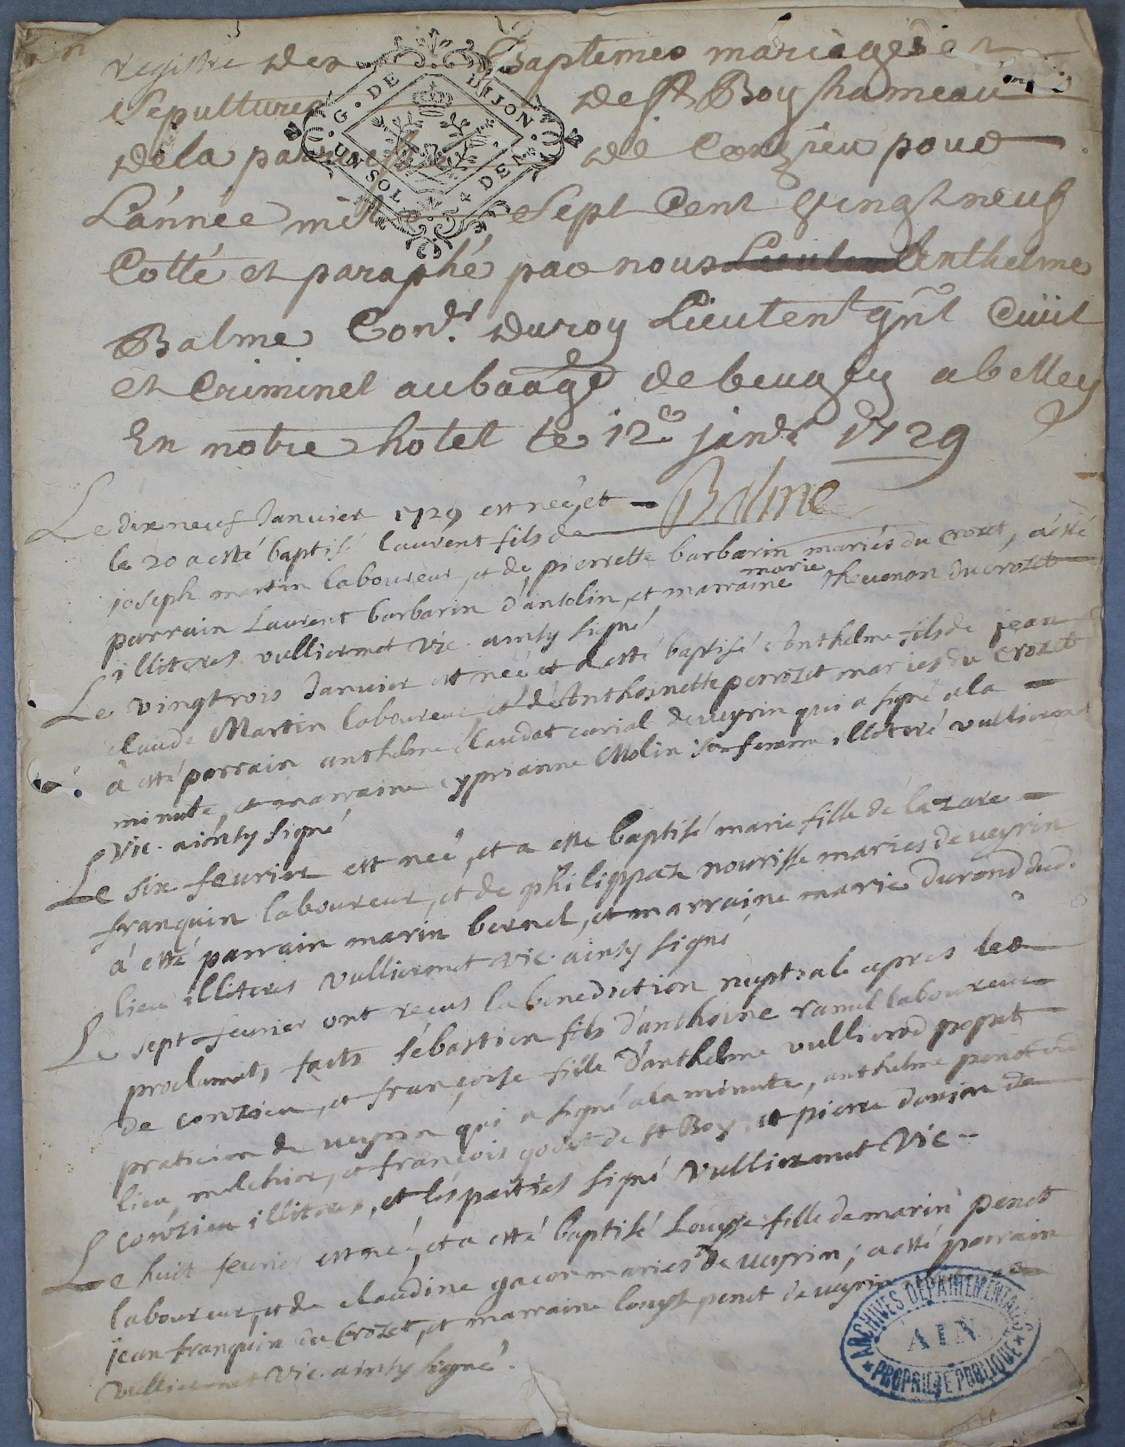 registre des Baptemes mariages et
Sepultures de St Boy hameau
de la parroisse de Conzieu pour
L'année mil Sept Cent Vingt neuf
Cotté et paraphé par nous Anthelme
Balme Conr. du roy Lieutent gnl Civil
et Criminel au baage de beugey a belley
En notre hotel le 12e janvr 1729
Balme
Le dix neuf Janvier 1729 est néé, et
le 20 a esté baptisé laurent fils de
joseph martin laboureur, et de pierrette barbarin mariés du crozet, a été
parrain Laurent barbarin d'antolin, et marraine marie thevenon du crozet
illiteres vulliermet vic. ainsy signé
Le vingtrois Janvier est néé et a esté baptisé Anthelme fils de jean
claude Martin laboureur et de Anthoinette perrozet mariés du Crozet
à esté parrain anthelme claudat curial de veyrin qui a signé a la
minute, et marraine cyprianne Molin sa femme illiteré vulliermet
Vic. ainsy signé
Le six fevrier est néé, et a esté baptisé marie fille de lazare
franquin laboureur, et de philippaz nourisse mariés de veyrin
à esté parrain marin bernel, et marraine marie durand dud.
lieu illiteres vulliermet vic. ainsy signé
Le sept fevrier ont reçus la benediction nuptiale apres les
proclamats faits sébastien fils d'anthoine ramel laboureur
de conzieu, et françoise fille d'anthelme vullierod popet
praticien de veyrin qui a signé a la minute, anthelme penet du
lieu melchior, et françois godet de St Boy, et pierre danjon de
conzieu illiteres, et les parties signé Vulliermet Vic
Le huit fevrier est néé, et a esté baptisé Louyse fille de marin penet
laboureur, et de claudine gacon mariés de veyrin; a esté parrain
jean franquin du Crozet, et marraine louyse penet de veyrin
vulliermet Vic. ainsy signé.
G. DE DIJON
UN SOL 4 DEN.
ARCHIVES DEPARTEMENTALES
AIN
PROPRIETE PUBLIQUE